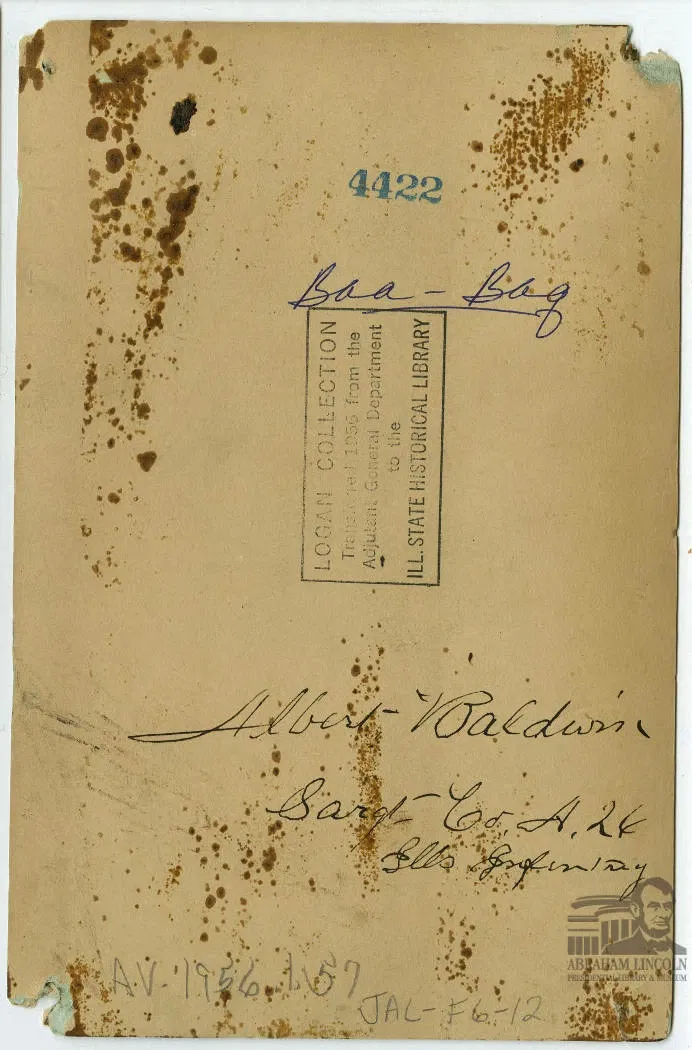 4422
Baa - Bag
LOGAN COLLECTION
Transferred 1956 from the
Adjutant General Department
to the
ILL. STATE HISTORICAL LIBRARY
Albert Baldwin
Sargt Co. A. 26
Ills Infintry
AV. 1956.1.57
JAL-F6-12
ABRAHAM LINCOLN
PRESIDENTIAL LIBRARY & MUSEUM